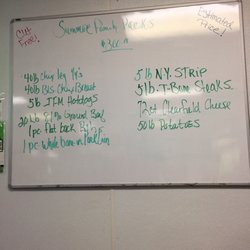 Cut
Free!
Summer Family Packs
Estimated
Free!
40lb Chix Leg 1/4's
40lb B/S Chix Breast
5lb IFM Hotdogs
20lb 81% Ground Beef
1pc flat back
1pc Whole Bone in Pork Loin
5lb N.Y. STRIP
5lb T-Bone Steaks
72ct Clearfield Cheese
50lb Potatoes